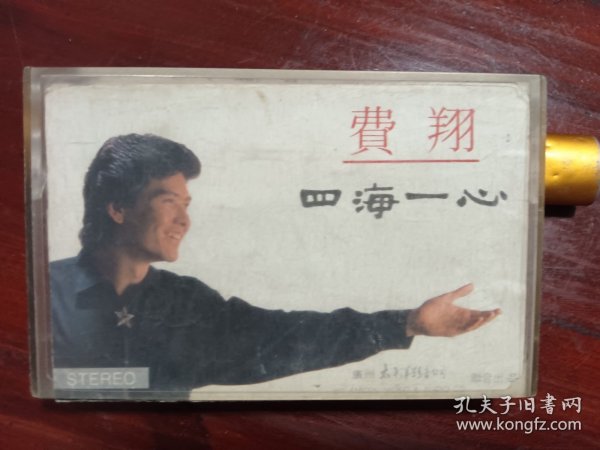 費翔
四海一心
STEREO
廣州
聯合出品
孔夫子旧書网
www.kongfz.com